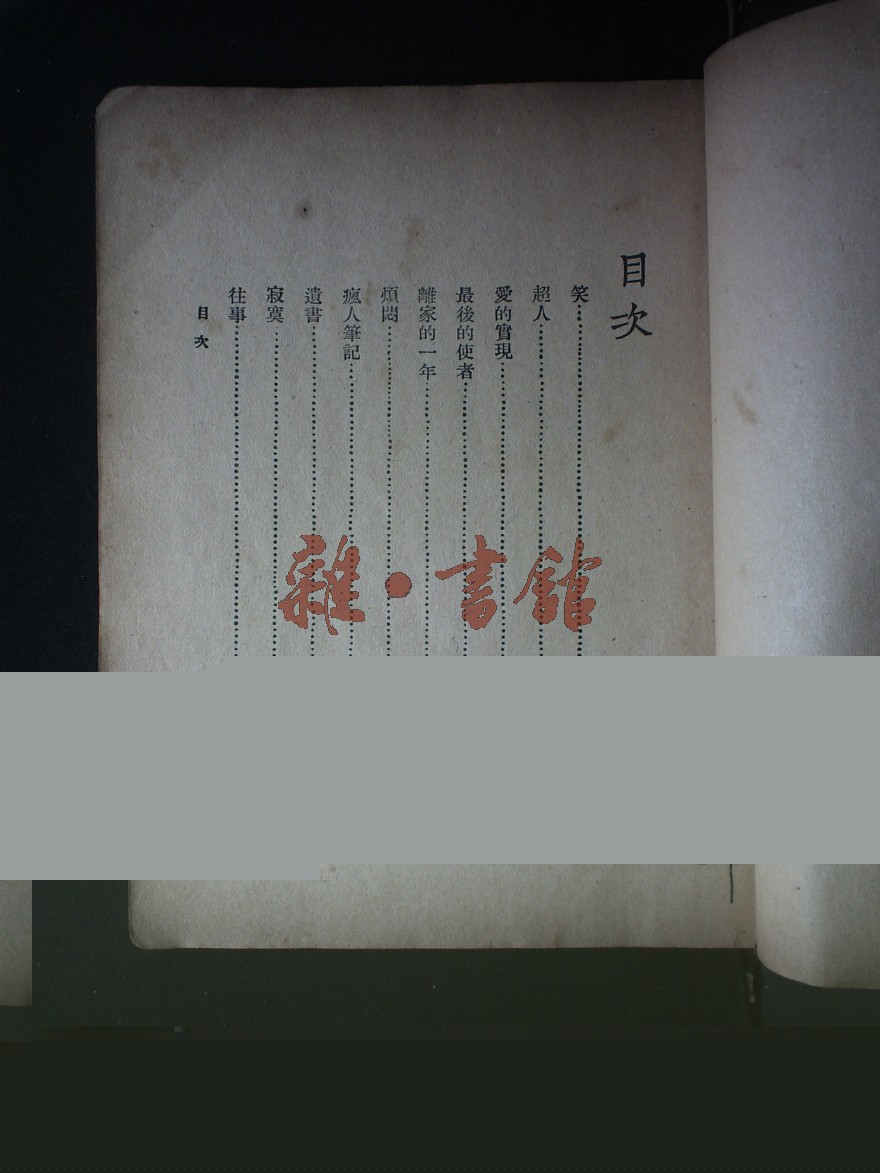 目次
笑
超人
愛的實現
最後的使者
離家的一年
煩悶
瘋人筆記
遺書
寂寞
往事
目次
雜·書館